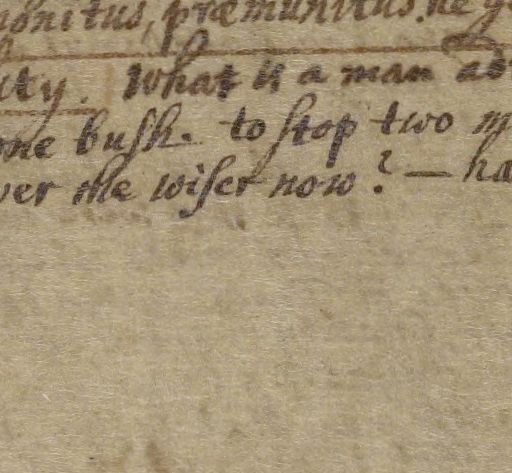 monitus, præmunitus. he g
ity. What is a man ad
one buſh. to ſtop two m
ver the wiſer now? — ha